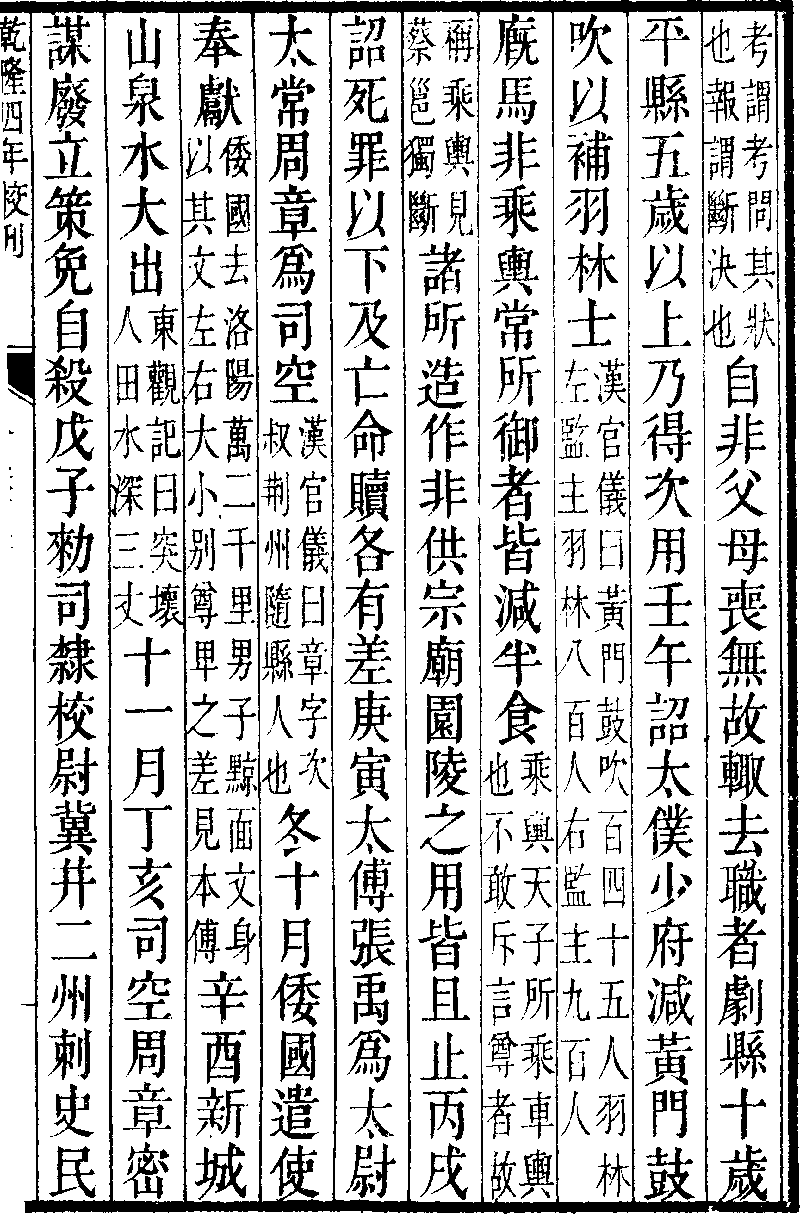 考謂考問其狀
也報謂斷決也自非父母喪無故輙去職者劇縣十歲
平縣五歲以上乃得次用壬午詔太僕少府減黃門鼓
吹以補羽林士漢官儀曰黃門鼓吹百四十五人羽林
左監主羽林八百人右監主九百人
廐馬非乘輿常所御者皆減半食乘輿天子所乘車輿
也不敢斥言尊者故
稱乘輿見
蔡邕獨斷諸所造作非供宗廟園陵之用皆且止丙戌
詔死罪以下及亡命贖各有差庚寅太傅張禹爲太尉
太常周章爲司空漢官儀曰章字次
叔荆州隨縣人也冬十月倭國遣使
奉獻倭國去洛陽萬二千里男子黥面文身
以其文左右大小别尊卑之差見本傅辛酉新城
山泉水大出東觀記曰突壞
人田水深三丈十一月丁亥司空周章密
謀廢立策免自殺戊子勑司隸校尉冀并二州刺史民
乾隆四年校刊